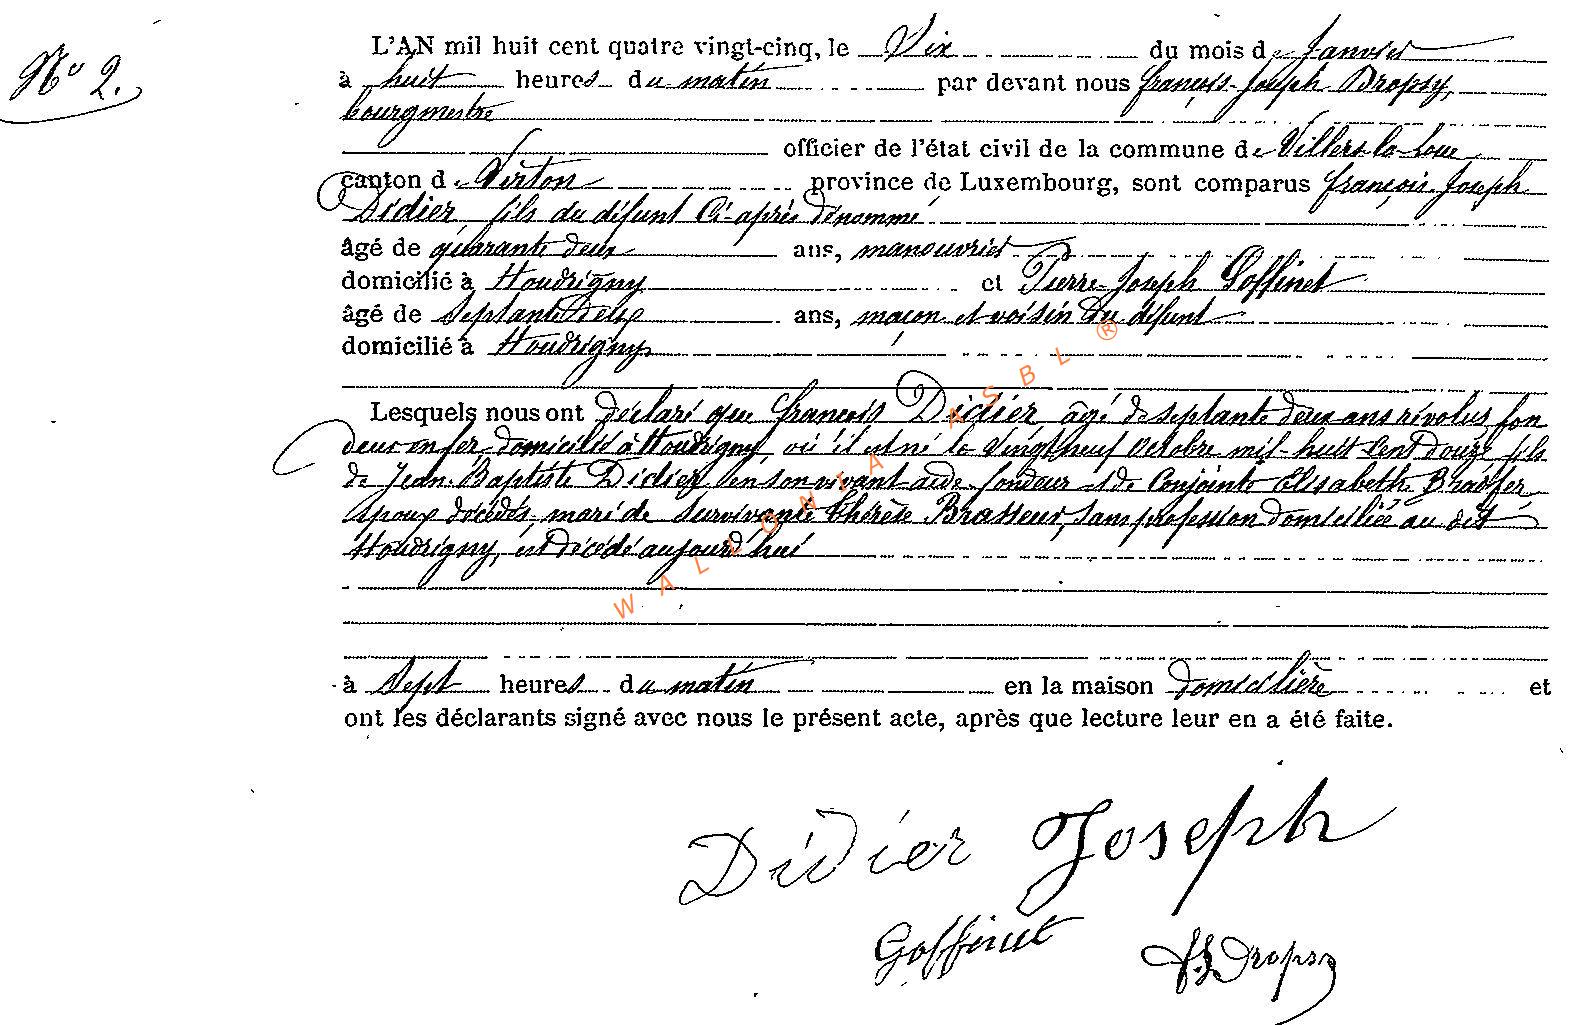 No 2.
L'AN mil huit cent quatre vingt-cinq, le Dix du mois de Janvier
à huit heures du matin par devant nous françois-Joseph Dropsy,
bourgmestre
officier de l'état civil de la commune de Villers-la-Loue
canton de Virton province de Luxembourg, sont comparus françois-Joseph
Didier, fils du défunt ci-après dénommé
âgé de quarante deux ans, manouvrier
domicilié à Houdrigny et Pierre-Joseph Goffinet
âgé de septante deux ans, maçon et voisin du défunt
domicilié à Houdrigny
Lesquels nous ont déclaré que françois Didier, âgé de septante deux ans révolus, fon
deur en fer, domicilié à Houdrigny, où il est né le vingt neuf Octobre mil-huit cent douze, fils
de Jean-Baptiste Didier, en son vivant aide-fondeur et de Conjointe Elisabeth
époux décédés, mari de survivante thérèse Brasseur, sans profession domiciliée au dit
Houdrigny, est décédé aujourd'hui
à Sept heures du matin en la maison domicilière et
ont les déclarants signé avec nous le présent acte, après que lecture leur en a été faite.
Didier Joseph
Goffinet FJ Dropsy
WALLONIA ASBL ®